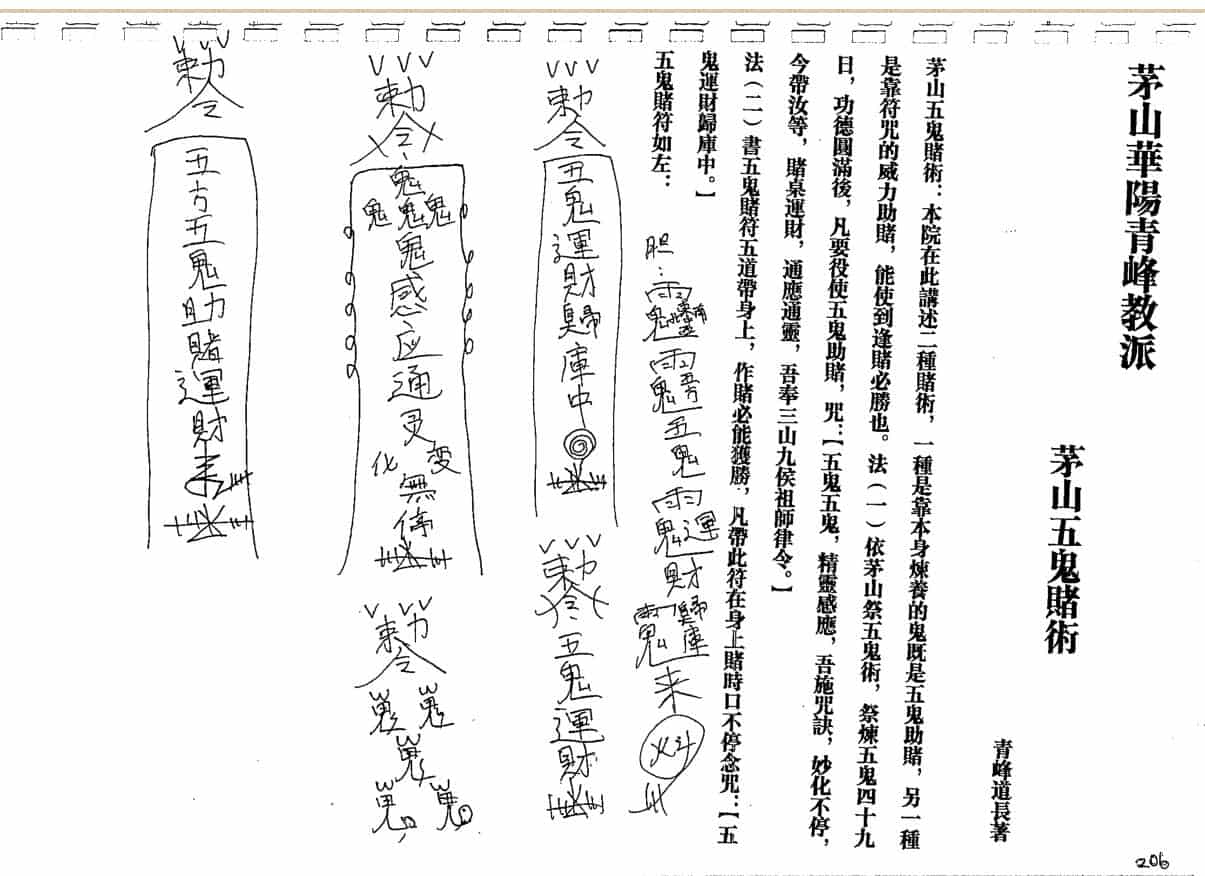 茅山華陽青峰教派
茅山五鬼賭術
青峰道長著
茅山五鬼賭術：本院在此講述二種賭術，一種是靠本身煉養的鬼既是五鬼助賭，另一種
是靠符咒的威力助賭，能使到逢賭必勝也。法（一）依茅山祭五鬼術，祭煉五鬼四十九
日，功德圓滿後，凡要役使五鬼助賭，咒：【五鬼五鬼，精靈感應，吾施咒訣，妙化不停，
今帶汝等，賭桌運財，通應通靈，吾奉三山九侯祖師律令。】
法（二）書五鬼賭符五道帶身上，作賭必能獲勝，凡帶此符在身上賭時口不停念咒：【五
鬼運財歸庫中。】
五鬼賭符如左：
胆：
五鬼
財
来
勅令五鬼運財歸庫中
勅令五鬼運財
勅令鬼鬼鬼鬼鬼感应通灵变化無停
勅令
勅令五方五鬼助賭運財来
206